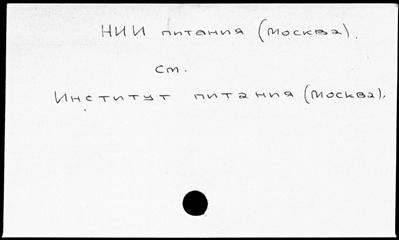 НИИ питания (Москва).
см.
Институт питания (Москва).